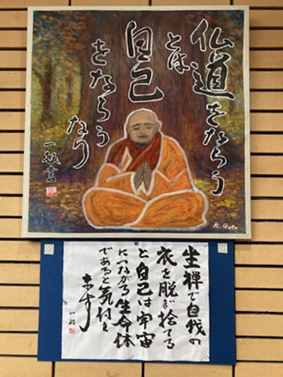 仏道をならう
とは
自己
をならう
なり
坐禅で自我の
衣を脱ぎ捨てる
と自己は宇宙
につながる生命体
であると気付く